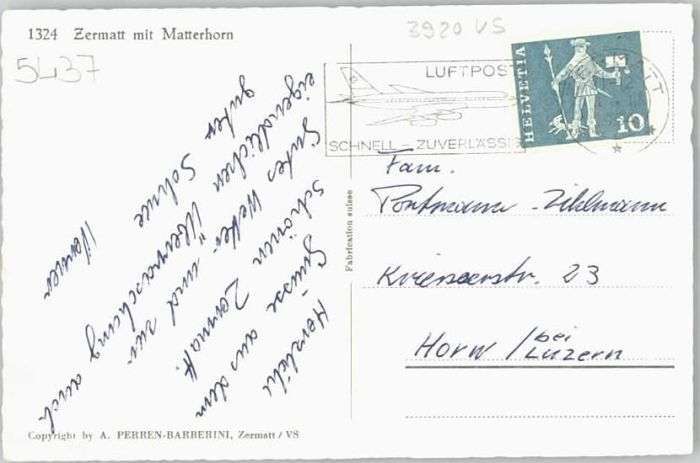 1324 Zermatt mit Matterhorn
5437
3920 VS
LUFTPOST
SCHNELL - ZUVERLÄSSI
HELVETIA
10
TT
Herzliche
Grüsse aus dem
schönen Zermatt.
Gutes Wetter und zur
eigendlichen Überraschung auch
guter Schnee
Werner
Fabrication suisse
Fam.
Portmann-Zihlmann
Krienserstr. 23
Horw / bei Luzern
Copyright by A. PERREN-BARBERINI, Zermatt / VS